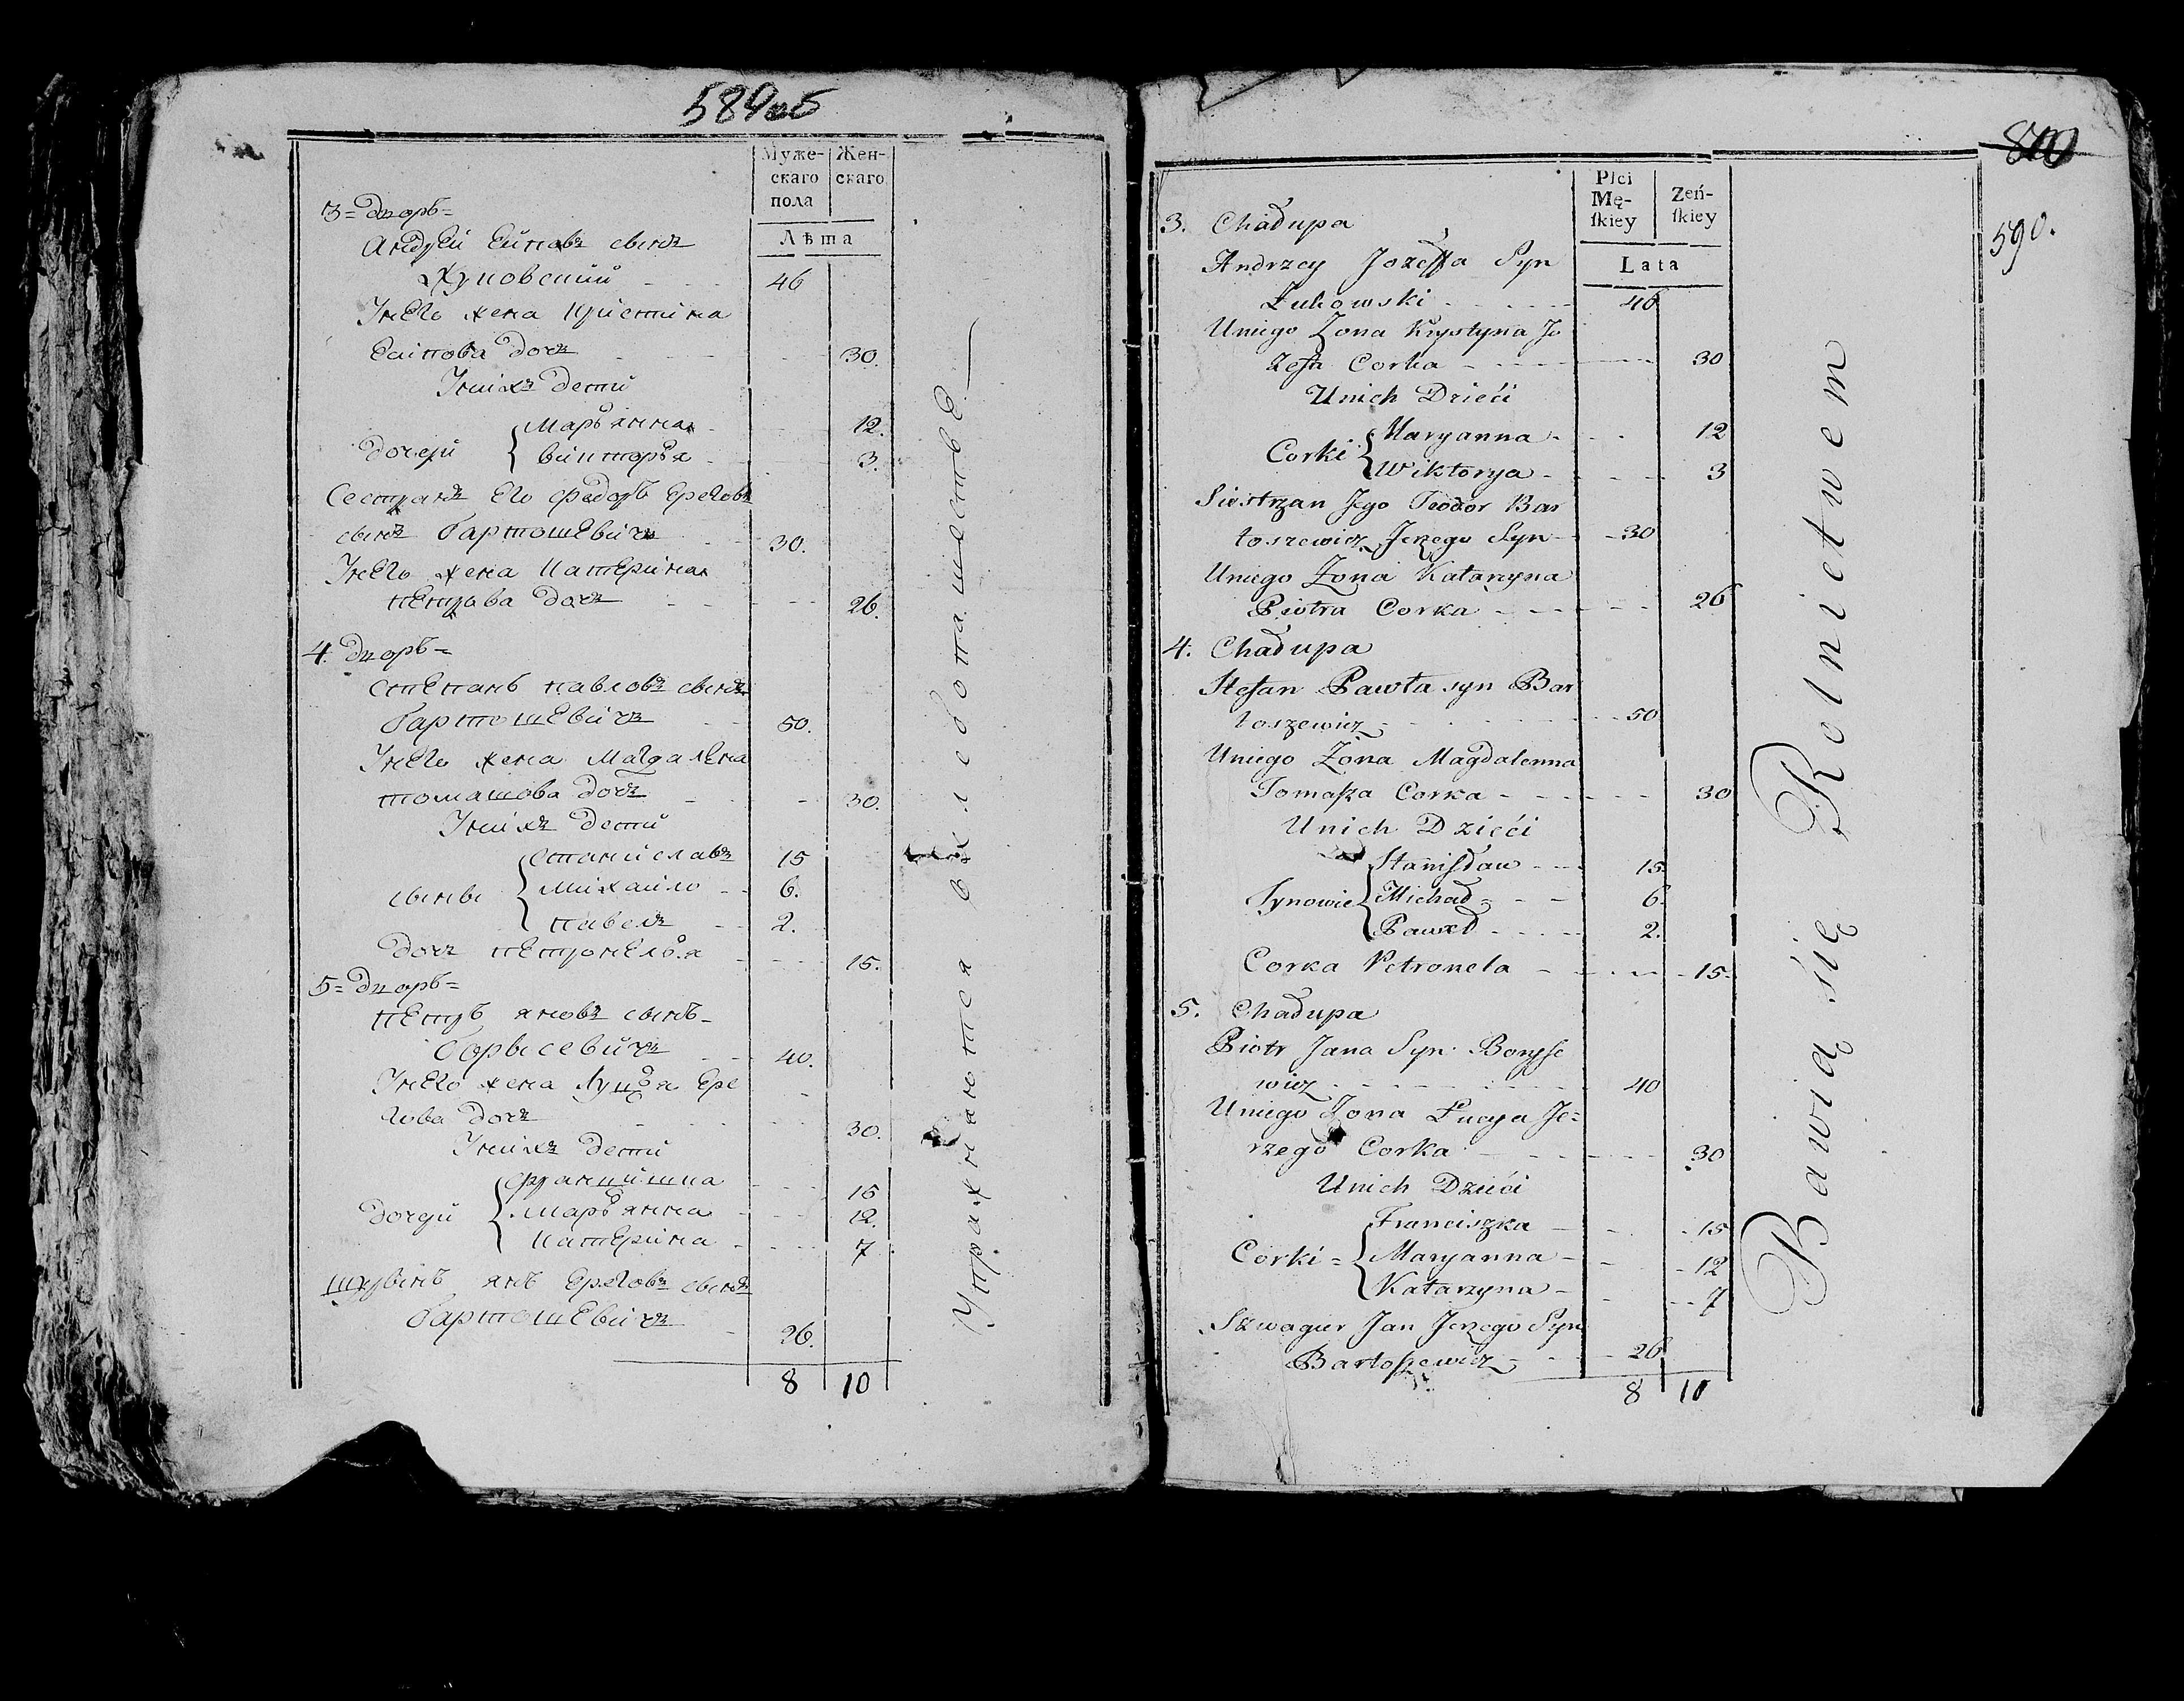 589об
Муже- Жен-
скаго скаго
пола
Лѣта
3 = Дворъ =
Андрей
46
Унего жена Кристина
дочъ 30.
Унихъ дети
дочери Марьянна 12.
Викторья 3.
Сестранъ Его Федоръ
сынъ Бартошевичъ 30.
Унего жена Катерина
Петрова дочъ 26.
4. Дворъ =
Степанъ Павловъ сынъ
Бартошевичъ 50.
Унего жена Магдалена
Томашова дочъ 30.
Унихъ дети
Станиславъ 15
сынове Михайло 6.
Павелъ 2.
дочъ Петронелья 15.
5 = Дворъ =
Петръ Яновъ сынъ
Борысевичъ 40.
Унего жена Луцья Ере
гова дочъ 30.
Унихъ дети
Францишка 15
дочери Марьянна 12.
Катерина 7
Янъ Ереговъ сынъ
Бартошевичъ 26.
8 10
Упражнаются въ хлебопашестве
800
590.
Płci Zeń-
Mę- ſkiey
ſkiey
Lata
3. Chałupa
Andrzey Jozeffa Syn
Żukowski 46
Uniego Żona Krystyna Jo
zefa Corka 30
Unich Dzieći
Corki Maryanna 12
Wiktorya 3
Siestrzan Jego Teodor Bar
toszewicz Jerzego Syn 30
Uniego Żona Katarzyna
Piotra Corka 26
4. Chałupa
Stefan Pawła syn Bar
toszewicz 50
Uniego Żona Magdalenna
Tomaſza Corka 30
Unich Dzieći
Staniſław 15
Synowie Michał 6
Paweł 2.
Corka Petronela 15
5. Chałupa
Piotr Jana Syn Boryſe
wicz 40
Uniego Żona Łucya Je=
rzego Corka 30
Unich Dzieći
Franciszka 15
Corki = Maryanna 12
Katarzyna 7
Szwagier Jan Jerzego Syn
Bartoſzewicz 26
8 10
Bawią się Rolnictwem